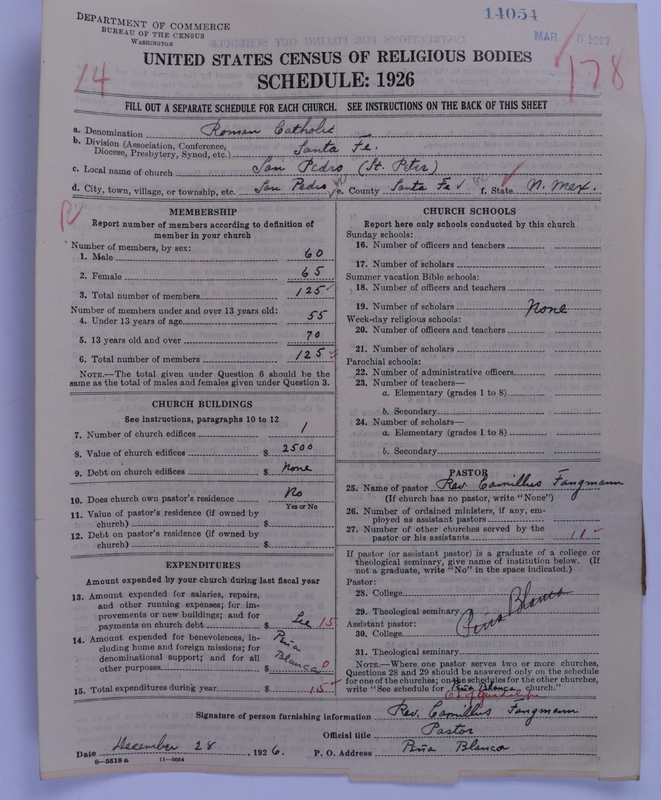 DEPARTMENT OF COMMERCE
BUREAU OF THE CENSUS
WASHINGTON
14054
MAR 5 1927
UNITED STATES CENSUS OF RELIGIOUS BODIES
SCHEDULE: 1926
14
178
FILL OUT A SEPARATE SCHEDULE FOR EACH CHURCH. SEE INSTRUCTIONS ON THE BACK OF THIS SHEET
a. Denomination Roman Catholic
b. Division (Association, Conference, Diocese, Presbytery, Synod, etc.) Santa Fe.
c. Local name of church San Pedro (St. Peter)
d. City, town, village, or township, etc. San Pedro e. County Santa Fe f. State N. Mex.
R
MEMBERSHIP
Report number of members according to definition of
member in your church
Number of members, by sex:
1. Male 60
2. Female 65
3. Total number of members 125
Number of members under and over 13 years old:
4. Under 13 years of age 55
5. 13 years old and over 70
6. Total number of members 125
NOTE.—The total given under Question 6 should be
same as the total of males and females given under Question 3.
CHURCH BUILDINGS
See instructions, paragraphs 10 to 12
7. Number of church edifices 1
8. Value of church edifices $ 2500
9. Debt on church edifices $ None
10. Does church own pastor's residence No
Yes or No
11. Value of pastor's residence (if owned by
church) $
12. Debt on pastor's residence (if owned by
church) $
EXPENDITURES
Amount expended by your church during last fiscal year
13. Amount expended for salaries, repairs,
and other running expenses; for im-
provements or new buildings; and for
payments on church debt $ See 15
14. Amount expended for benevolences, in-
cluding home and foreign missions; for
denominational support; and for all
other purposes $ Peña Blanca 0
15. Total expenditures during year $ 15
CHURCH SCHOOLS
Report here only schools conducted by this church
Sunday schools:
16. Number of officers and teachers
17. Number of scholars
Summer vacation Bible schools:
18. Number of officers and teachers
19. Number of scholars None
Week-day religious schools:
20. Number of officers and teachers
21. Number of scholars
Parochial schools:
22. Number of administrative officers
23. Number of teachers—
a. Elementary (grades 1 to 8)
b. Secondary
24. Number of scholars—
a. Elementary (grades 1 to 8)
b. Secondary
PASTOR
25. Name of pastor Rev. Camillus Fangmann
(If church has no pastor, write "None")
26. Number of ordained ministers, if any, em-
ployed as assistant pastors
27. Number of other churches served by the
pastor or his assistants 11
If pastor (or assistant pastor) is a graduate of a college or
theological seminary, give name of institution below. (If
not a graduate, write "No" in the space indicated.)
Pastor:
28. College
29. Theological seminary Peña Blanca
Assistant pastor:
30. College
31. Theological seminary
NOTE.—Where one pastor serves two or more churches,
Questions 28 and 29 should be answered only on the schedule
for one of the churches; on the schedules for the other churches,
write "See schedule for Peña Blanca church."
Signature of person furnishing information Rev. Camillus Fangmann
Official title Pastor
Date December 28, 1926. P. O. Address Peña Blanca
8—5518a 11—9034